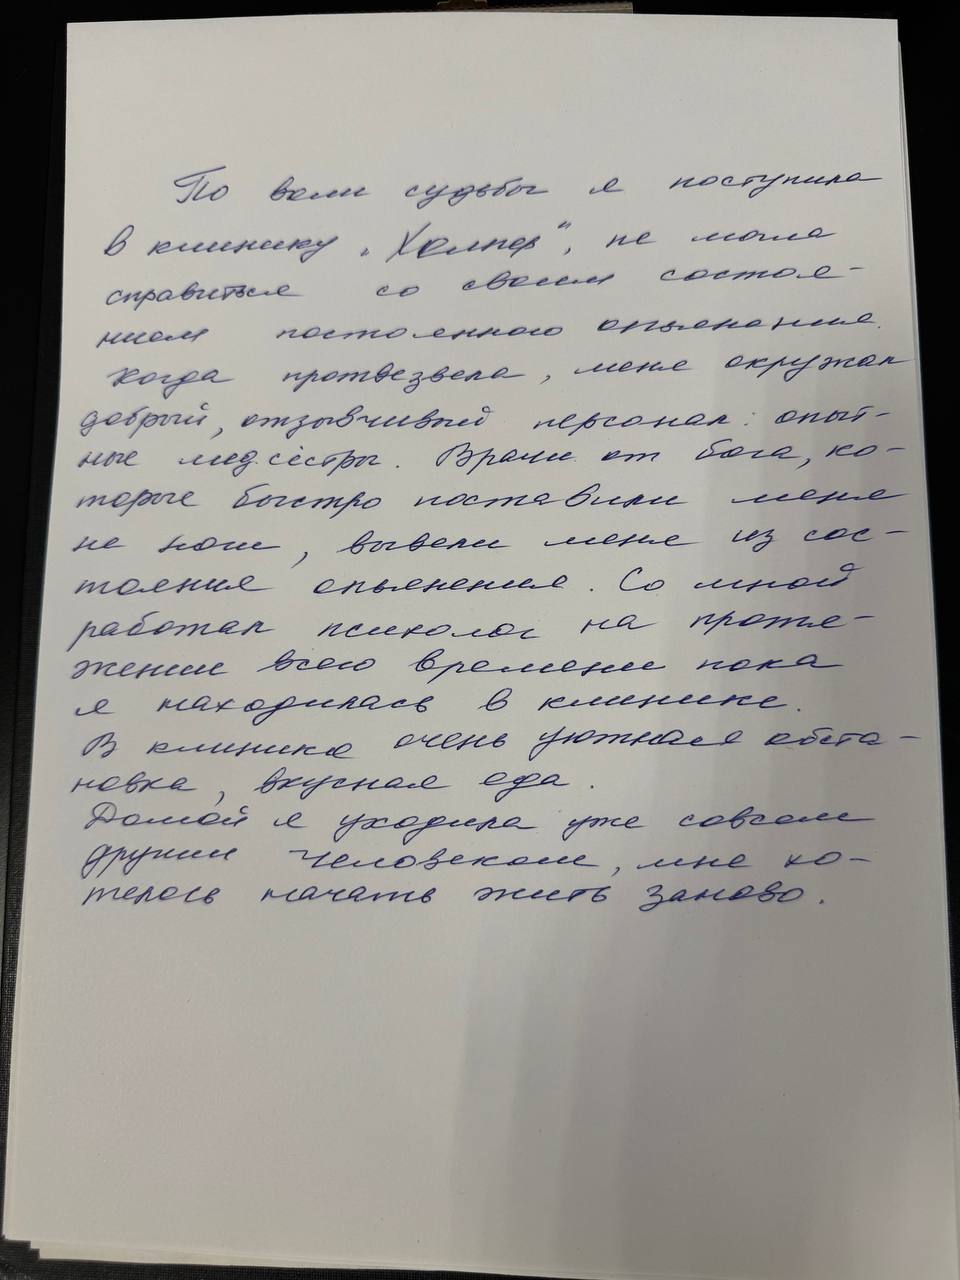 По воли судьбы я поступила
в клинику „Хелпер“, не могла
справиться со своим состоя-
нием постоянного опьянения.
Когда протвезвела, меня окружал
добрый, отзывчивый персонал: опыт-
ные медсёстры. Врачи от бога, ко-
торые быстро поставили меня
на ноги, вывели меня из сос-
тояния опьянения. Со мной
работал психолог на протя-
жении всего времени пока
я находилась в клинике.
В клинике очень уютная обста-
новка, вкусная еда.
Домой я уходила уже совсем
другим человеком, мне хо-
телось начать жить заново.